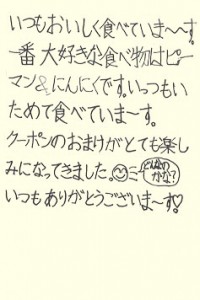 いつもおいしく食べていま〜す。
一番大好きな食べ物はピー
マン&にんにくです。いっつもい
ためて食べていま〜す。
クーポンのおまけがとても楽し
みになってきました。
どんなの
かな?
いつもありがとうございま〜す♡